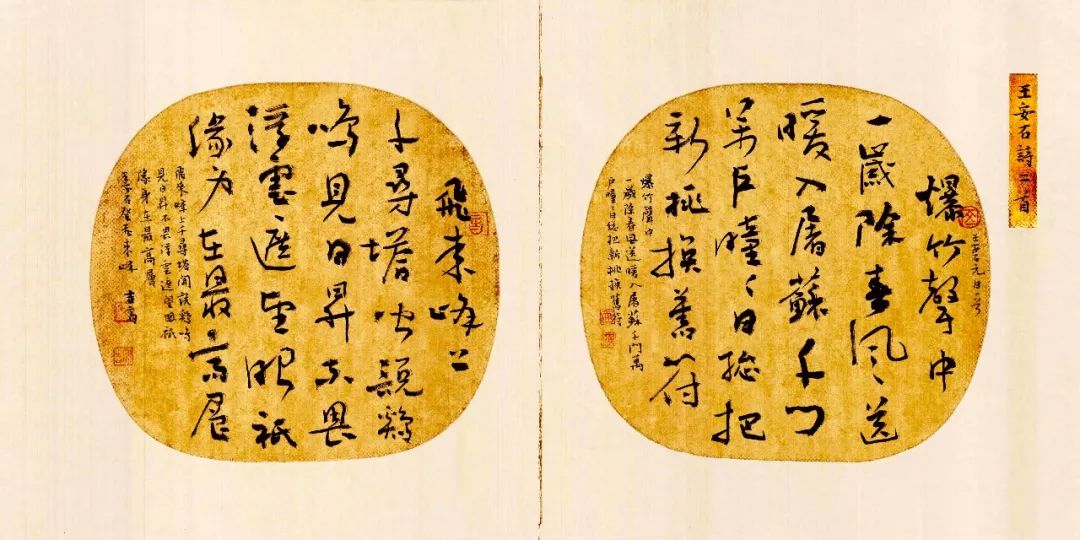 王安石詩二首
爆竹聲中
一歲除春風〻送
暖入屠蘇千門
萬戶曈〻日總把
新桃換舊符
爆竹聲中
一歲除春風送暖入屠蘇千門萬
戶曈〻日總把新桃換舊符
飛來峰上
千尋塔聞說雞
鳴見日昇不畏
浮雲遮望眼祇
緣身在最高層
飛來峰上千尋塔聞說雞鳴
見日昇不畏浮雲遮望眼祇
緣身在最高層
王安石登飛來峰